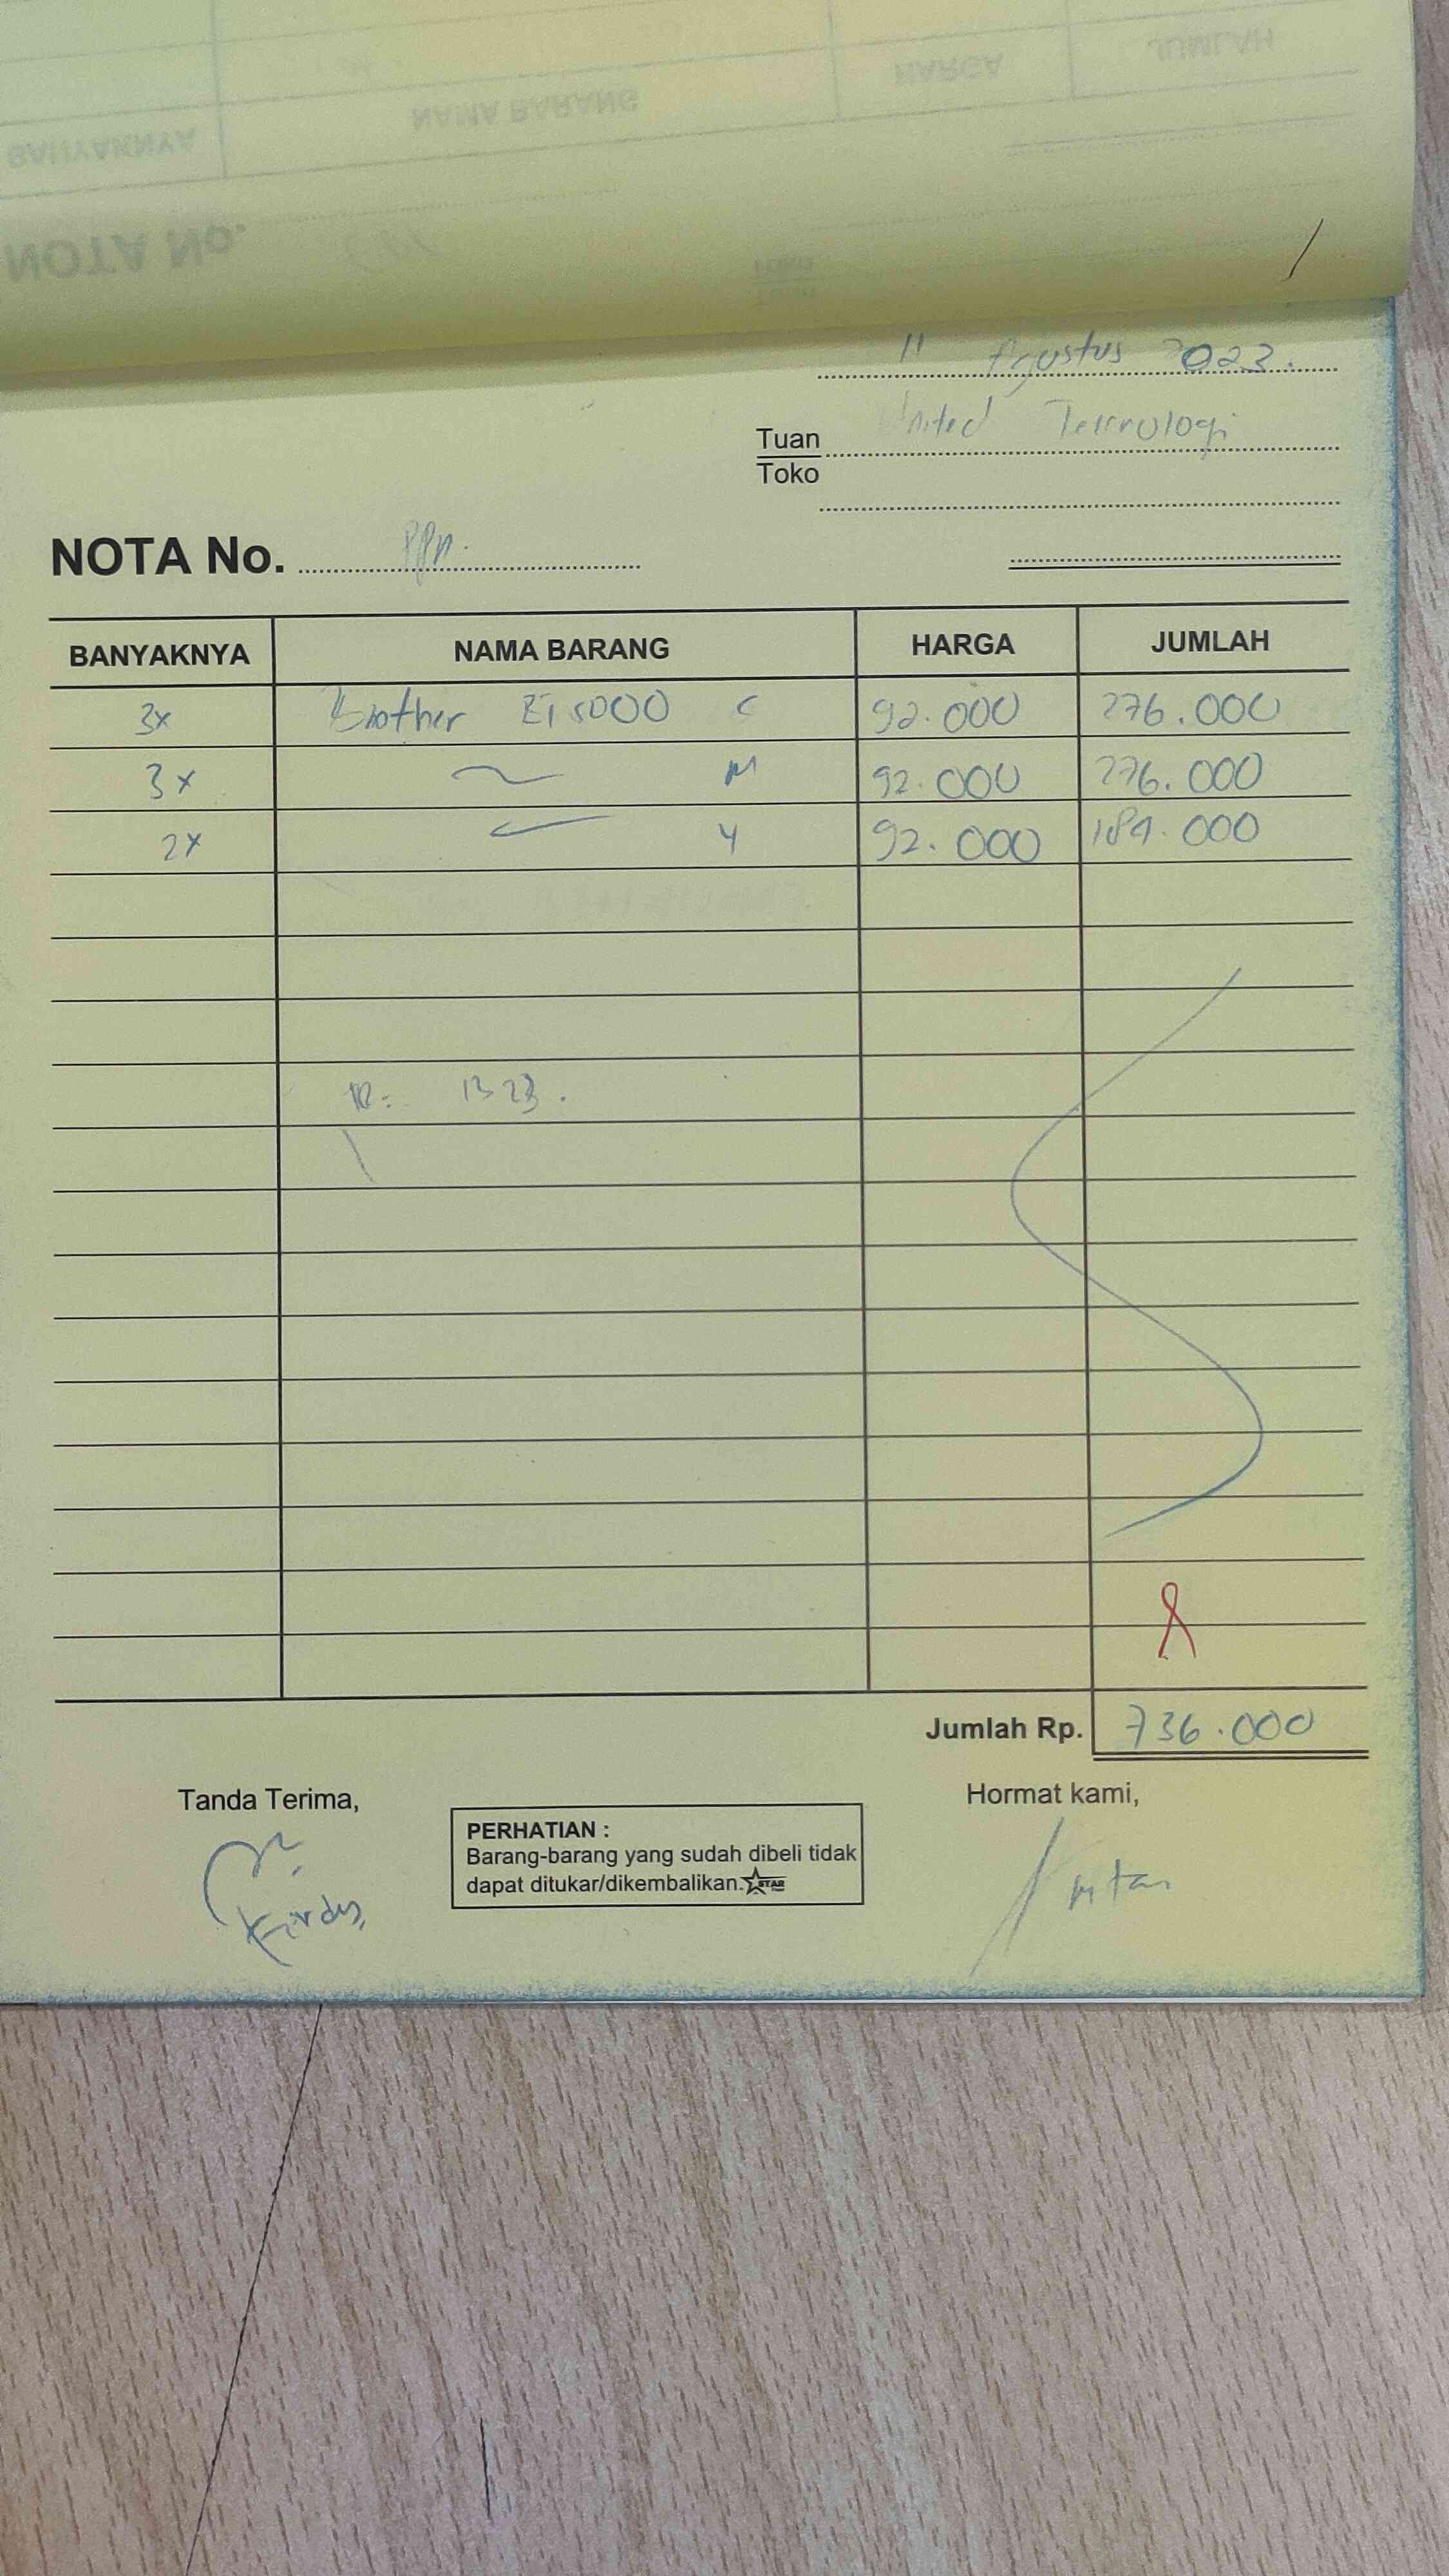 11 Agustus 2023.
Tuan United Teknologi
Toko
NOTA No. PPn.
BANYAKNYA NAMA BARANG HARGA JUMLAH
3x Brother 5000 C 92.000 276.000
3x M 92.000 276.000
2x Y 92.000 184.000
1323.
Jumlah Rp. 736.000
Tanda Terima, Hormat kami,
PERHATIAN :
Barang-barang yang sudah dibeli tidak
dapat ditukar/dikembalikan. STAR
Firdus
Intan